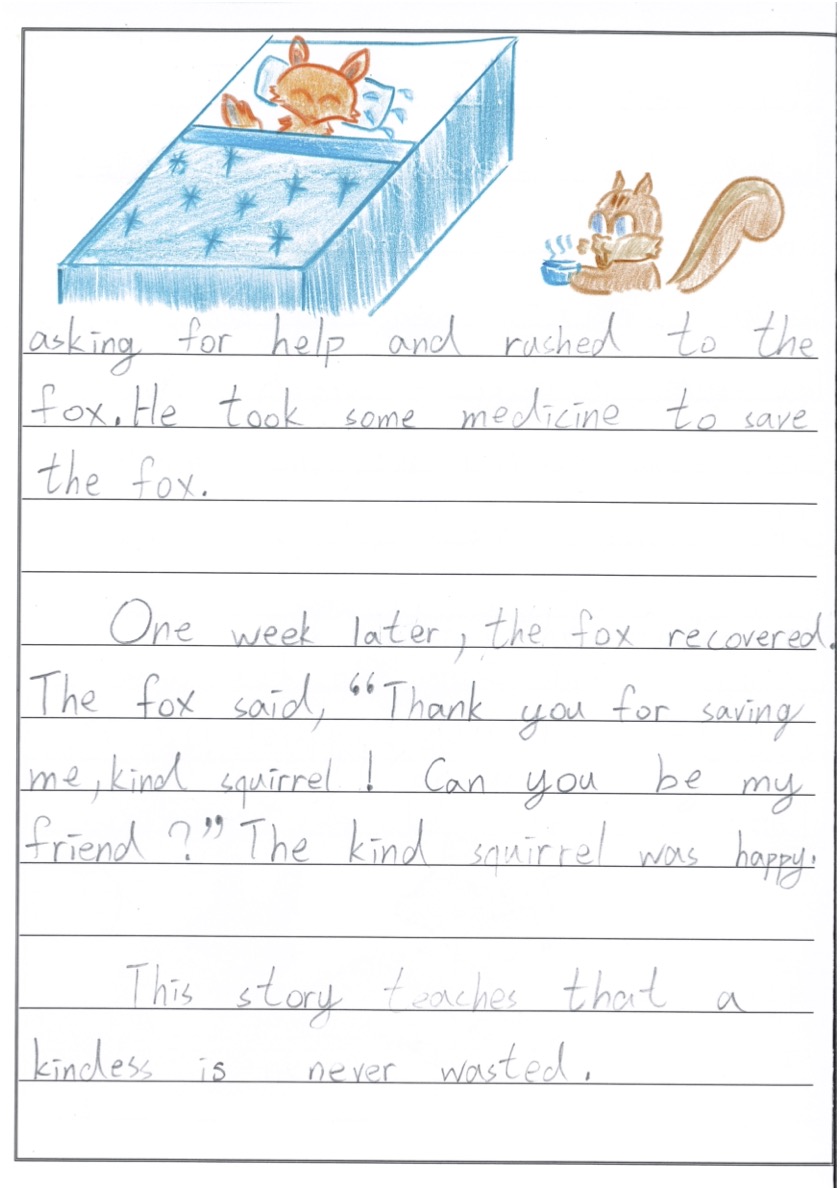 asking for help and rushed to the
fox. He took some medicine to save
the fox.
One week later, the fox recovered.
The fox said, “Thank you for saving
me, kind squirrel! Can you be my
friend?” The kind squirrel was happy.
This story teaches that a
kindess is never wasted.